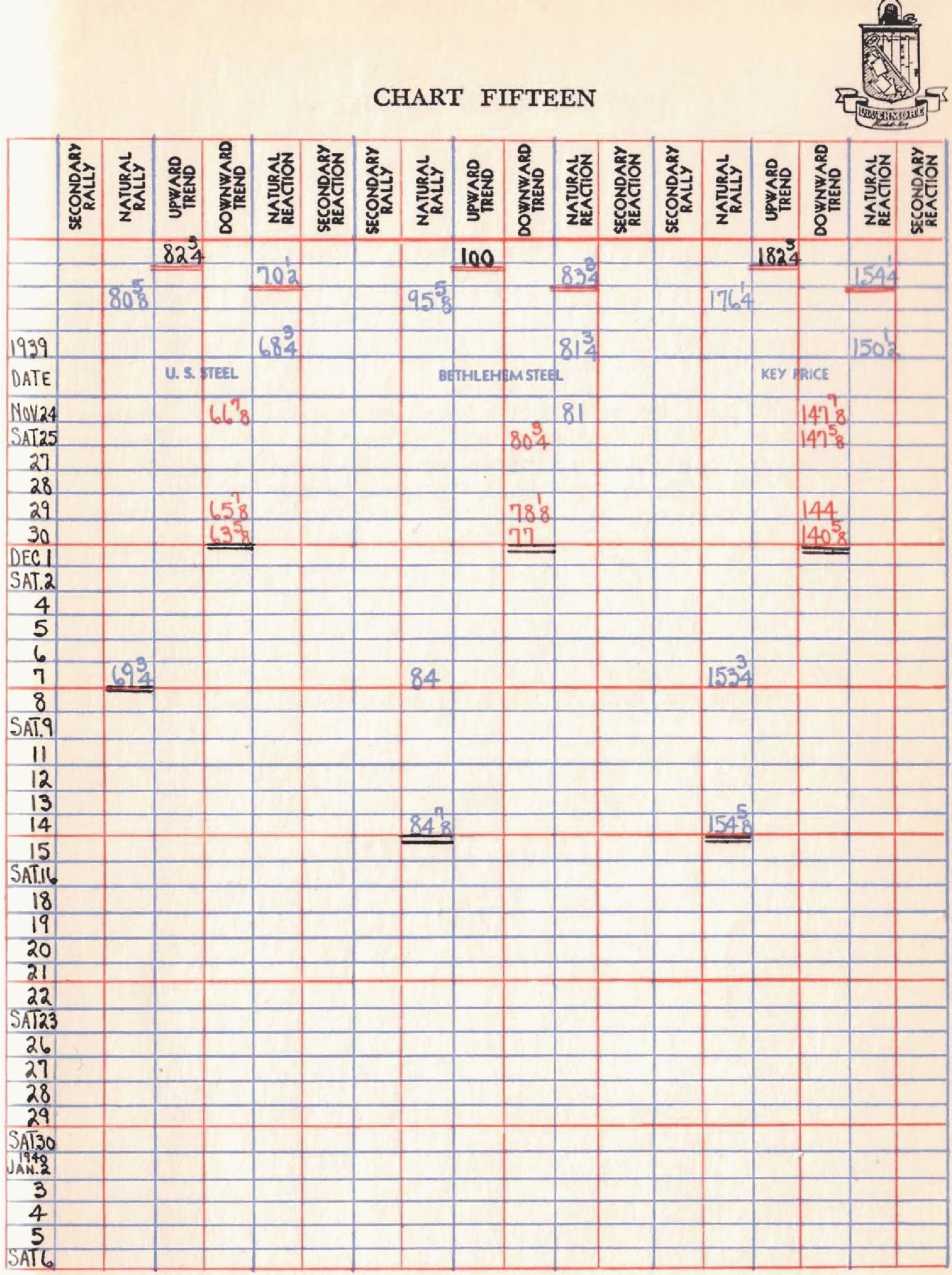 LIVERMORE
CHART FIFTEEN
SECONDARY RALLY NATURAL RALLY UPWARD TREND DOWNWARD TREND NATURAL REACTION SECONDARY REACTION SECONDARY RALLY NATURAL RALLY UPWARD TREND DOWNWARD TREND NATURAL REACTION SECONDARY REACTION SECONDARY RALLY NATURAL RALLY UPWARD TREND DOWNWARD TREND NATURAL REACTION SECONDARY REACTION
82 3/4 100 182 3/4
70 1/2 83 3/4 154 1/4
80 5/8 95 5/8 176 1/4
1939 68 3/4 81 3/4 150 1/2
DATE U. S. STEEL BETHLEHEM STEEL KEY PRICE
NOV.24 66 7/8 81 147 7/8
SAT.25 80 3/4 147 5/8
27
28
29 65 1/8 78 1/8 144
30 63 5/8 77 140 5/8
DEC 1
SAT.2
4
5
6
7 69 3/4 84 153 3/4
8
SAT.9
11
12
13
14 84 7/8 154 5/8
15
SAT.16
18
19
20
21
22
SAT23
26
27
28
29
SAT.30
1940
JAN.2
3
4
5
SAT 6